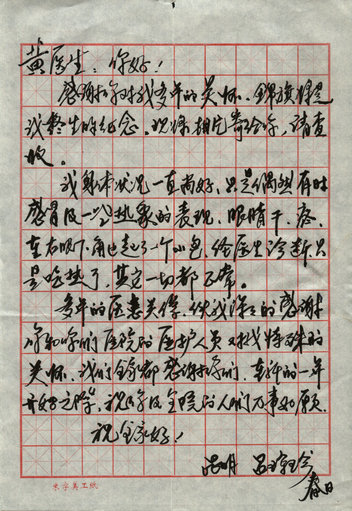 黄医生：你好！
感谢你对我多年的关怀。锦旗将是
我终生的纪念。现将相片寄给你，请查
收。
我身体状况一直尚好，只是偶然有时
感冒及一些热象的表现，眼睛干、疼，
左右眼下角起了个小包，经医生诊断只
是吃热了，其它一切都正常。
多年的医患关系，使我深深的感谢
你和你们医院的医护人员对我特殊的
关怀。我们全家都感谢你们。在新的一年
开始之际，祝你及全院的人们万事如愿。
祝全家好！
吕
春日
朱字美工纸